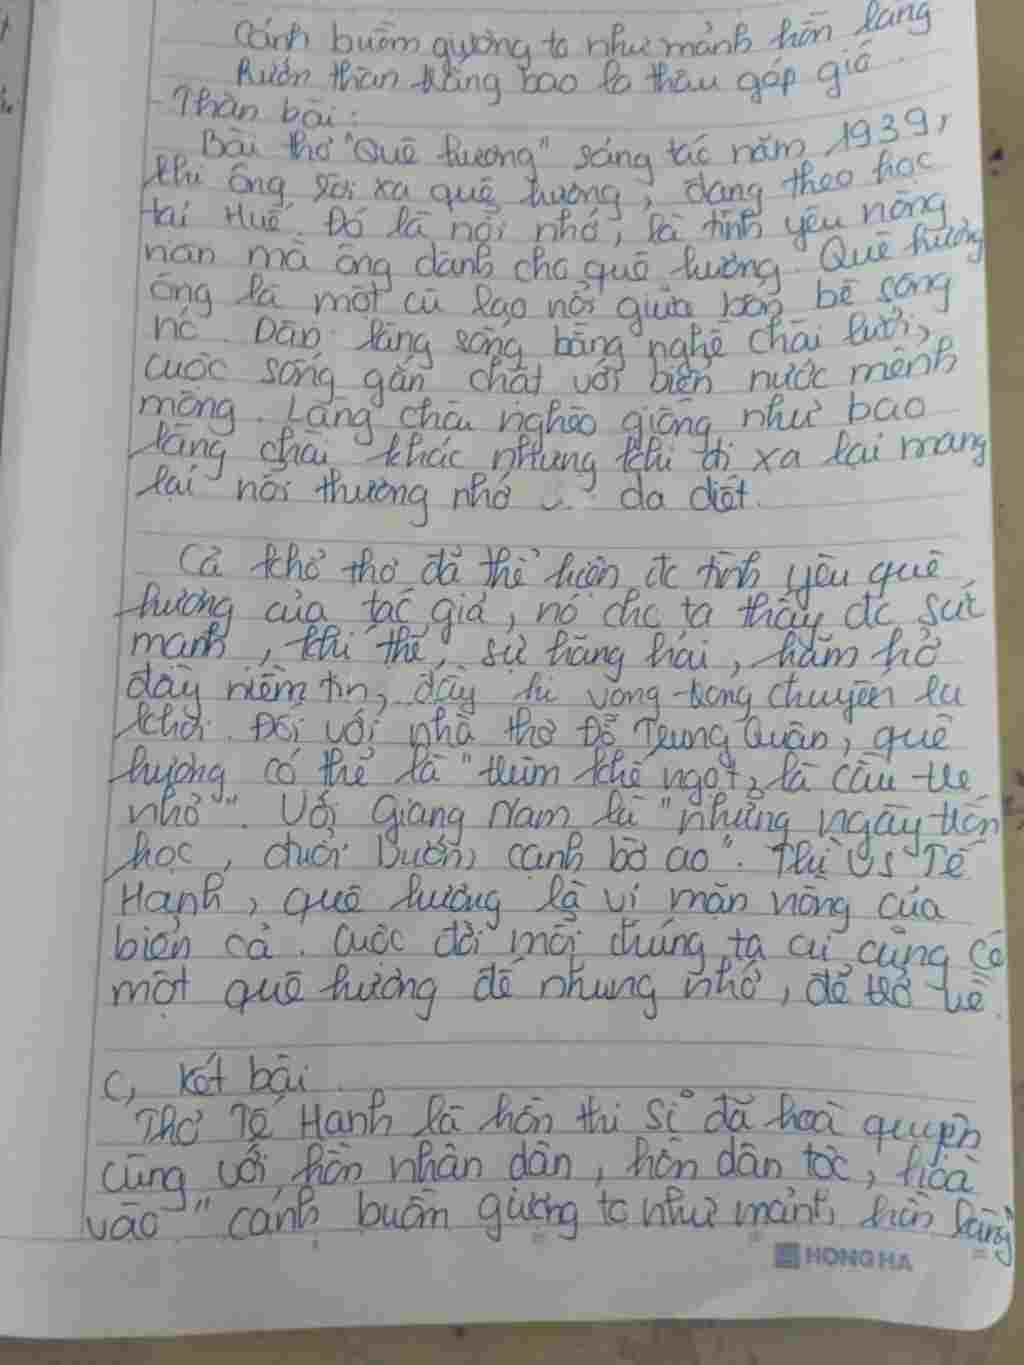 Cánh buồm giương to như mảnh hồn làng
Rướn thân trắng bao la thâu góp gió.
- Thân bài:
Bài thơ "Quê hương" sáng tác năm 1939,
khi ông rời xa quê hương, đang theo học
tại Huế. Đó là nỗi nhớ, là tình yêu nồng
nàn mà ông dành cho quê hương. Quê hương
ông là một cù lao nổi giữa bốn bề sông
nc. Dân làng sống bằng nghề chài lưới,
cuộc sống gắn chặt với biển nước mênh
mông. Làng chài nghèo giống như bao
làng chài khác nhưng khi đi xa lại mang
lại nỗi thương nhớ da diết.
Cả khổ thơ đã thể hiện đc tình yêu quê
hương của tác giả, nó cho ta thấy đc sức
mạnh, khí thế, sự hăng hái, hăm hở
đầy niềm tin, đầy hi vọng trong chuyến ra
khơi. Đối với nhà thơ Đỗ Trung Quân, quê
hương có thể là "chùm khế ngọt, là cầu tre
nhỏ". Với Giang Nam là "những ngày trốn
học, đuổi bướm cạnh bờ ao". Thì vs Tế
Hanh, quê hương là vị mặn nồng của
biển cả. Cuộc đời mỗi chúng ta ai cũng có
một quê hương để nhung nhớ, để trở về.
C, Kết bài
Thơ Tế Hanh là hồn thi sĩ đã hoà quyện
cùng với hồn nhân dân, hồn dân tộc, hoà
vào "cánh buồm giương to như mảnh hồn làng
HONG HA